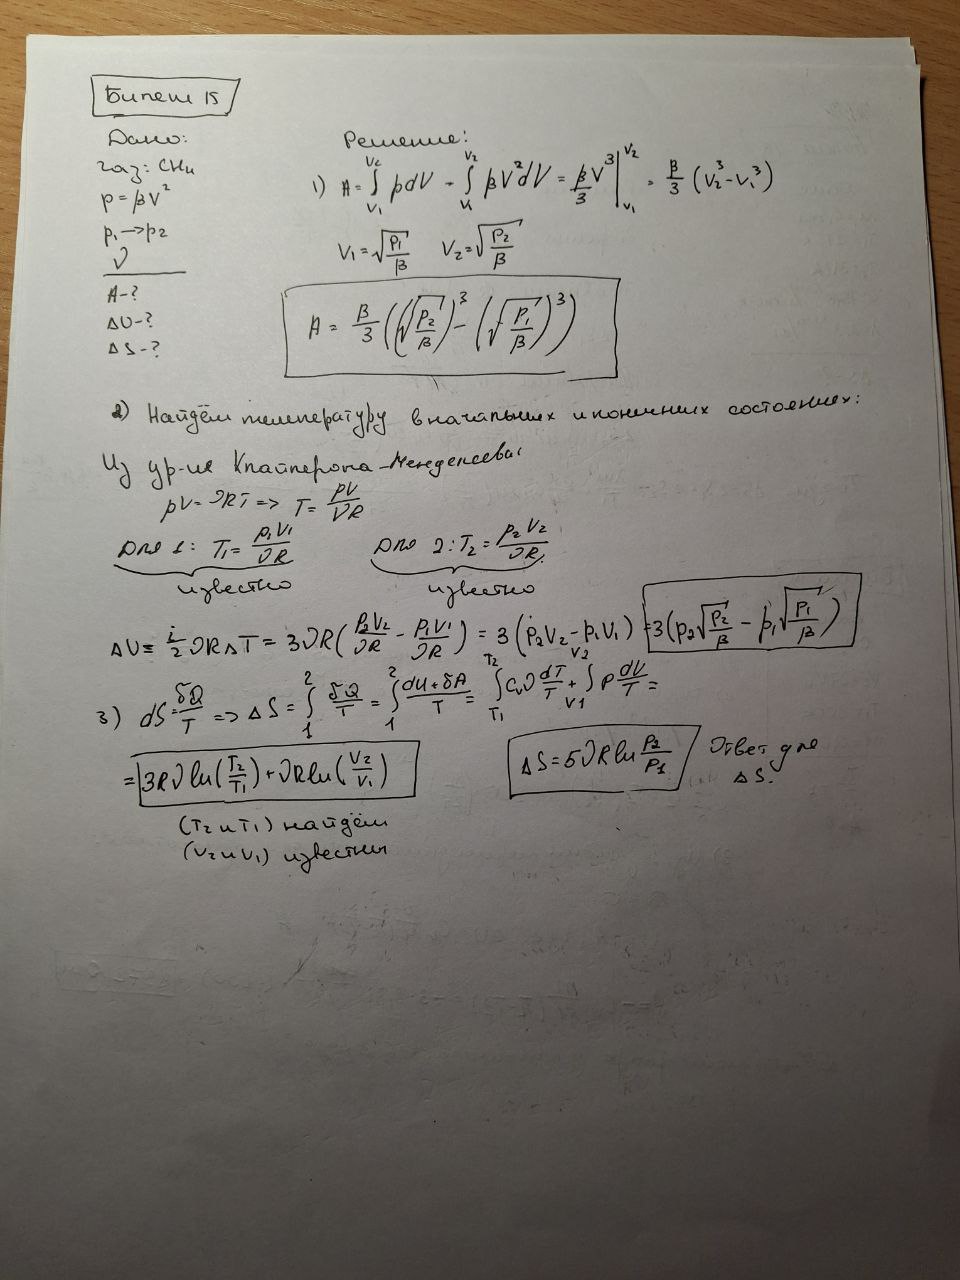 Билет 15
Дано:
газ: CH₄
p = βV²
p₁ → p₂
ν
A - ?
ΔU - ?
ΔS - ?
Решение:
1) A = ∫_{V₁}^{V₂} pdV = ∫_{V₁}^{V₂} βV²dV = β/3 V³ |_{V₁}^{V₂} = β/3 (V₂³ - V₁³)
V₁ = √(p₁/β) V₂ = √(p₂/β)
A = β/3 ((√(p₂/β))³ - (√(p₁/β))³)
2) Найдём температуру в начальных и конечных состояниях:
Из ур-ия Клайперона - Менделеева:
pV = νRT => T = pV/νR
Для 1: T₁ = p₁V₁/νR Для 2: T₂ = p₂V₂/νR
известно известно
ΔU = i/2 νRΔT = 3νR(p₂V₂/νR - p₁V₁/νR) = 3(p₂V₂ - p₁V₁) = 3(p₂√(p₂/β) - p₁√(p₁/β))
3) dS = δQ/T => ΔS = ∫₁² δQ/T = ∫₁² (dU + δA)/T = ∫_{T₁}^{T₂} Cᵥν dT/T + ∫_{V1}^{V2} p dV/T =
= 3Rν ln(T₂/T₁) + νR ln(V₂/V₁)
(T₂ и T₁) найдём
(V₂ и V₁) известны
ΔS = 5νR ln p₂/p₁
Ответ для
ΔS.